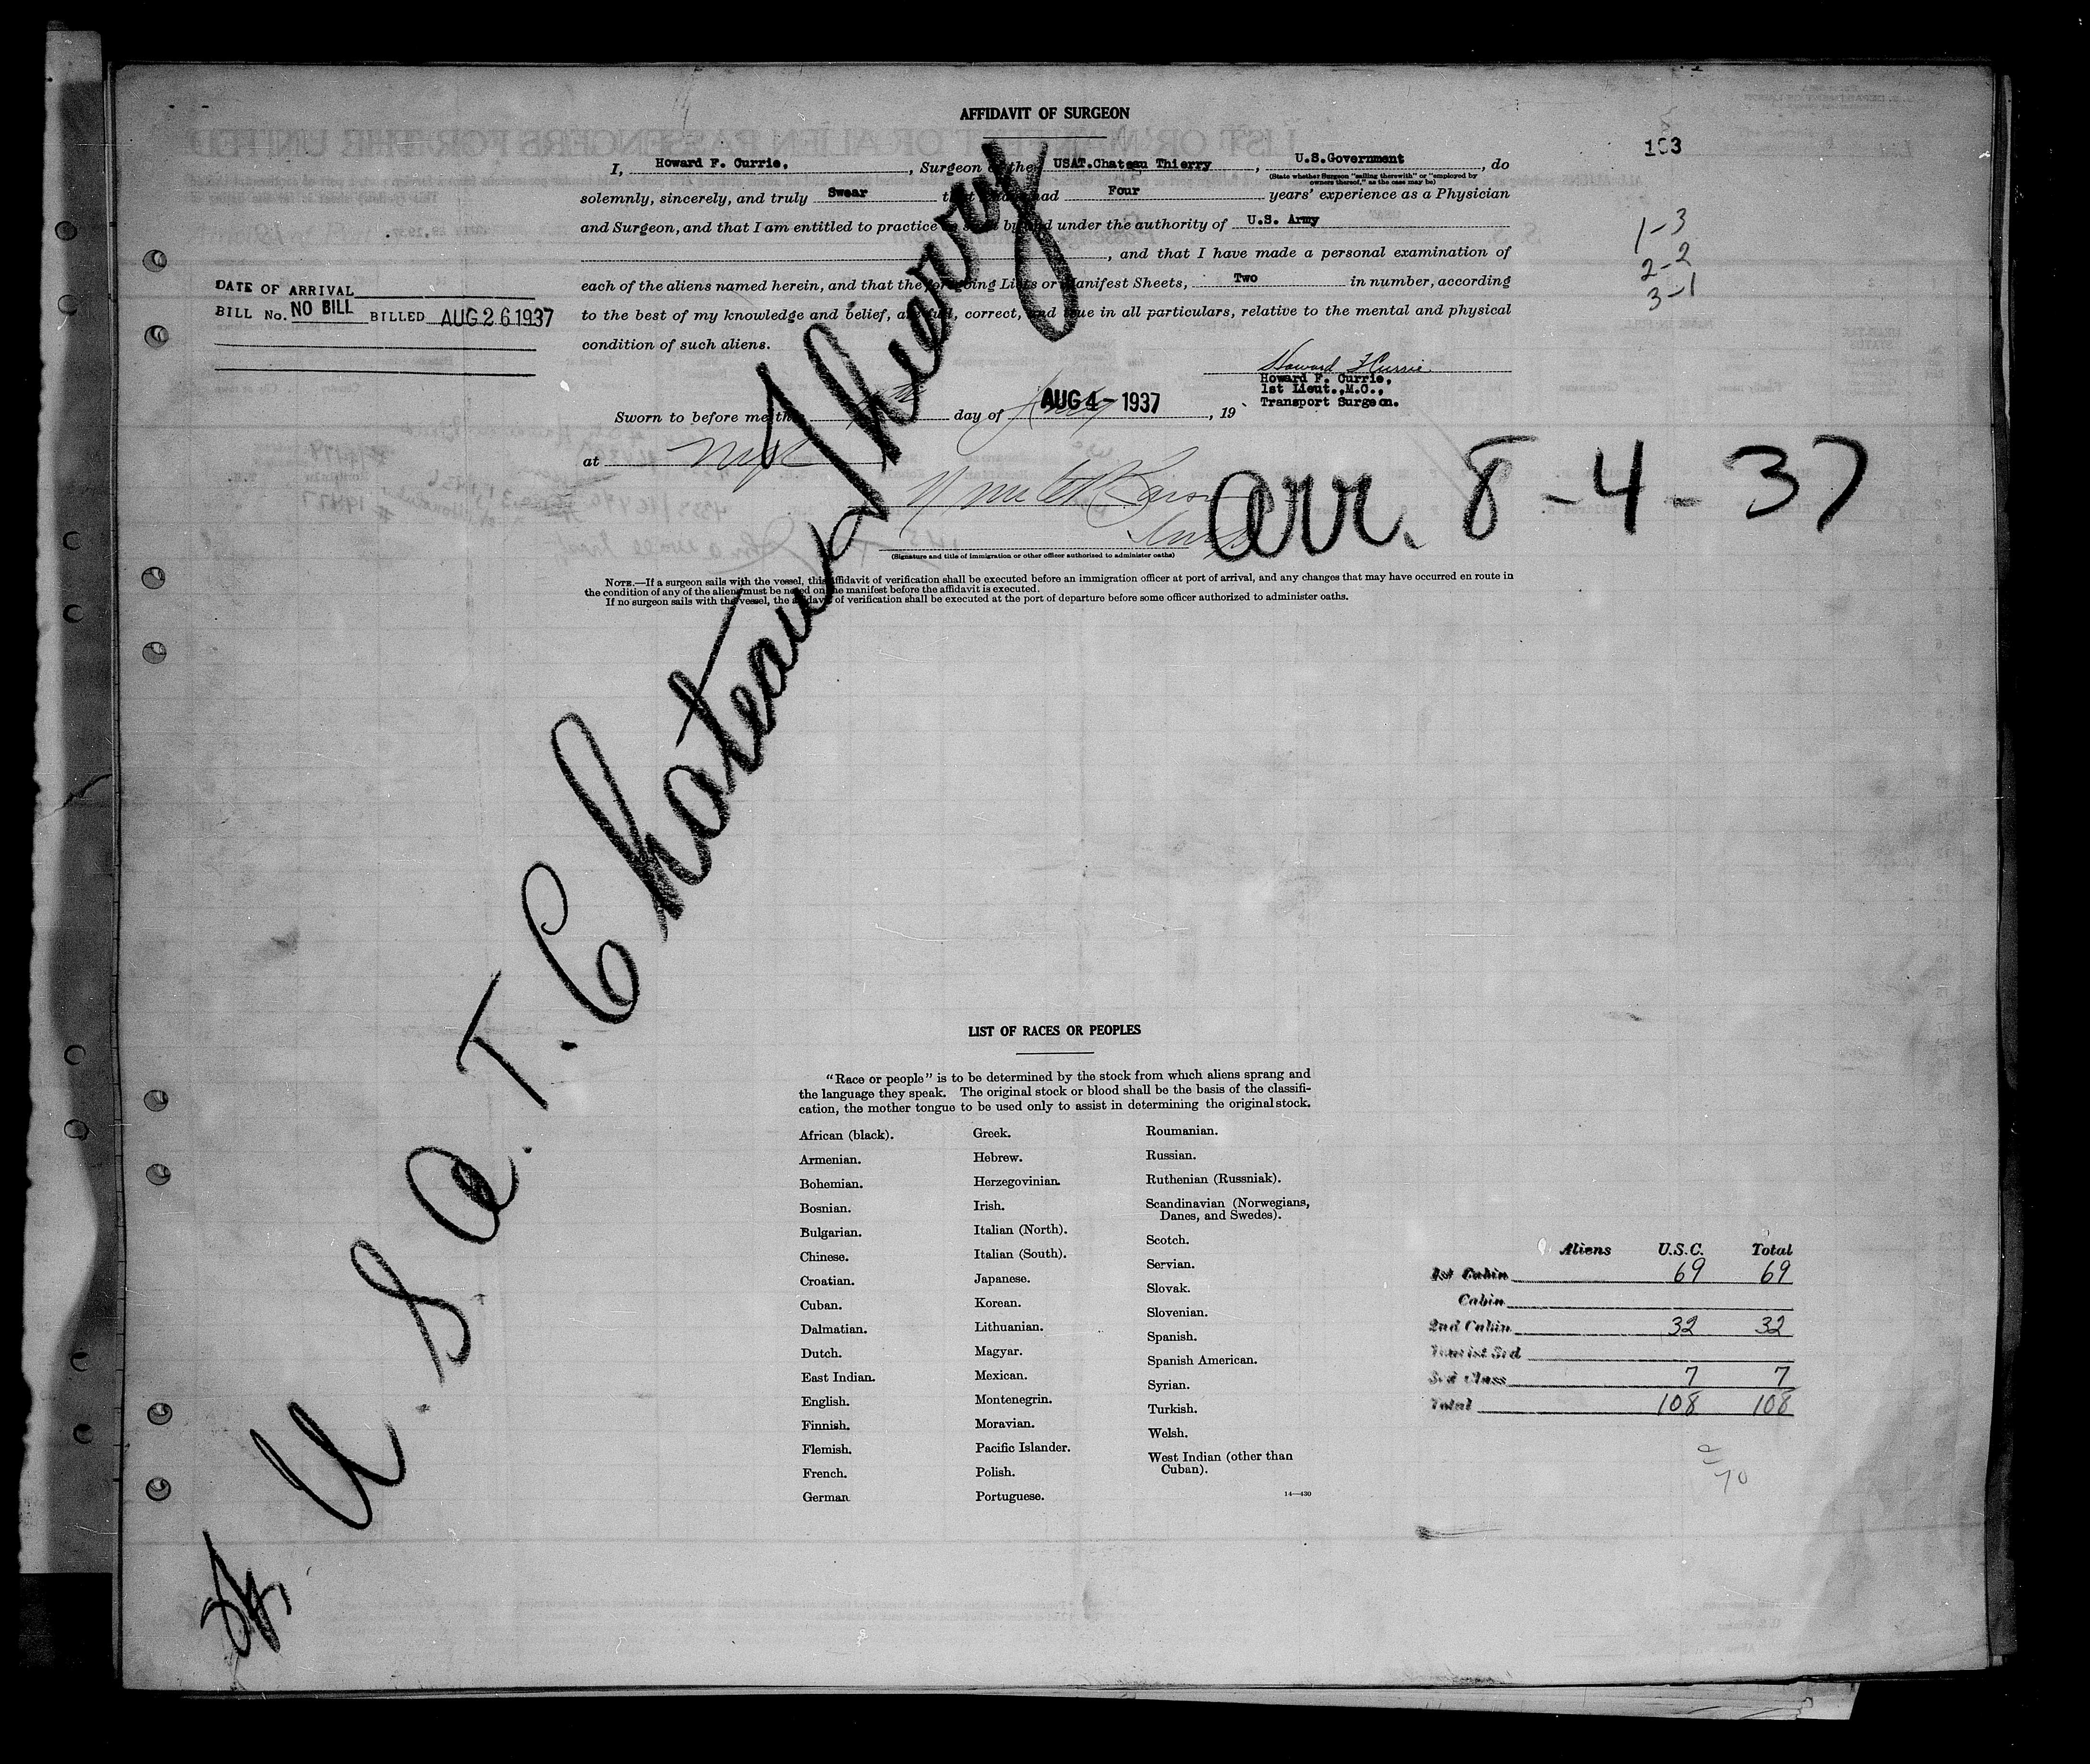 AFFIDAVIT OF SURGEON
I, Howard F. Currie, , Surgeon of the USAT.Chateau Thierry , U.S.Government , do
(State whether Surgeon "sailing therewith" or "employed by
owners thereof," as the case may be)
solemnly, sincerely, and truly Swear that I have had Four years' experience as a Physician
and Surgeon, and that I am entitled to practice as such by and under the authority of U.S. Army
, and that I have made a personal examination of
each of the aliens named herein, and that the foregoing Lists or Manifest Sheets, Two in number, according
to the best of my knowledge and belief, are full, correct, and true in all particulars, relative to the mental and physical
condition of such aliens.
Howard F Currie
Howard F. Currie,
1st Lieut.,M.C.,
Transport Surgeon.
Sworn to before me this day of AUG 4 - 1937 , 19
at
(Signature and title of immigration or other officer authorized to administer oaths)
NOTE.—If a surgeon sails with the vessel, this affidavit of verification shall be executed before an immigration officer at port of arrival, and any changes that may have occurred en route in
the condition of any of the aliens must be noted on the manifest before the affidavit is executed.
If no surgeon sails with the vessel, the affidavit of verification shall be executed at the port of departure before some officer authorized to administer oaths.
103
1-3
2-2
3-1
DATE OF ARRIVAL
BILL No. NO BILL BILLED AUG 26 1937
arr. 8-4-37
U.S.A.T. Chateau Thierry
LIST OF RACES OR PEOPLES
"Race or people" is to be determined by the stock from which aliens sprang and
the language they speak. The original stock or blood shall be the basis of the classifi-
cation, the mother tongue to be used only to assist in determining the original stock.
African (black).
Armenian.
Bohemian.
Bosnian.
Bulgarian.
Chinese.
Croatian.
Cuban.
Dalmatian.
Dutch.
East Indian.
English.
Finnish.
Flemish.
French.
German
Greek.
Hebrew.
Herzegovinian.
Irish.
Italian (North).
Italian (South).
Japanese.
Korean.
Lithuanian.
Magyar.
Mexican.
Montenegrin.
Moravian.
Pacific Islander.
Polish.
Portuguese.
Roumanian.
Russian.
Ruthenian (Russniak).
Scandinavian (Norwegians,
Danes, and Swedes).
Scotch.
Servian.
Slovak.
Slovenian.
Spanish.
Spanish American.
Syrian.
Turkish.
Welsh.
West Indian (other than
Cuban).
14—430
Aliens U.S.C. Total
1st Cabin 69 69
Cabin
2nd Cabin 32 32
Tourist 3rd
3rd Class 7 7
Total 108 108